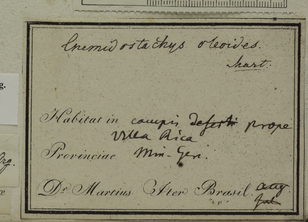 Cnemidostachys oleoides.
Mart.
Habitat in campis desertis prope
Villa Rica
Provinciae Min. Ger.
Dr. Martius Iter Brasil.